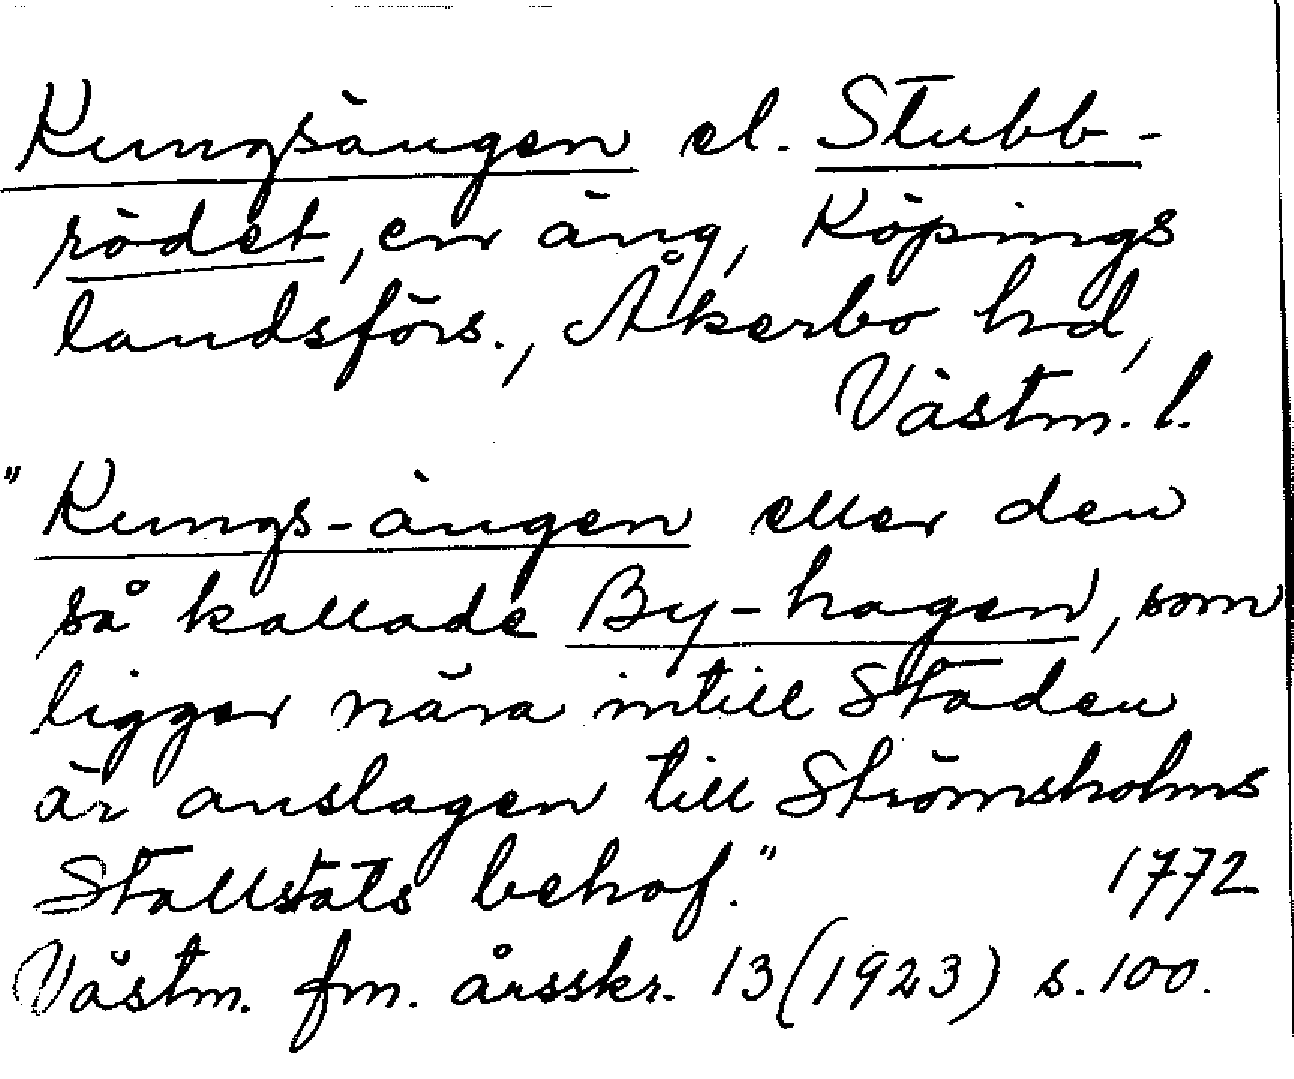 Kungsängen el. Stubb-
rödet, en äng, Köpings
landsförs., Åkerbo hd,
Västm. l.
"Kungs-ängen eller den
så kallade By-hagen, som
ligger nära intill Staden
är anslagen till Strömsholms
Stallstats behof." 1772
Västm. fm. årsskr. 13 (1923) s. 100.